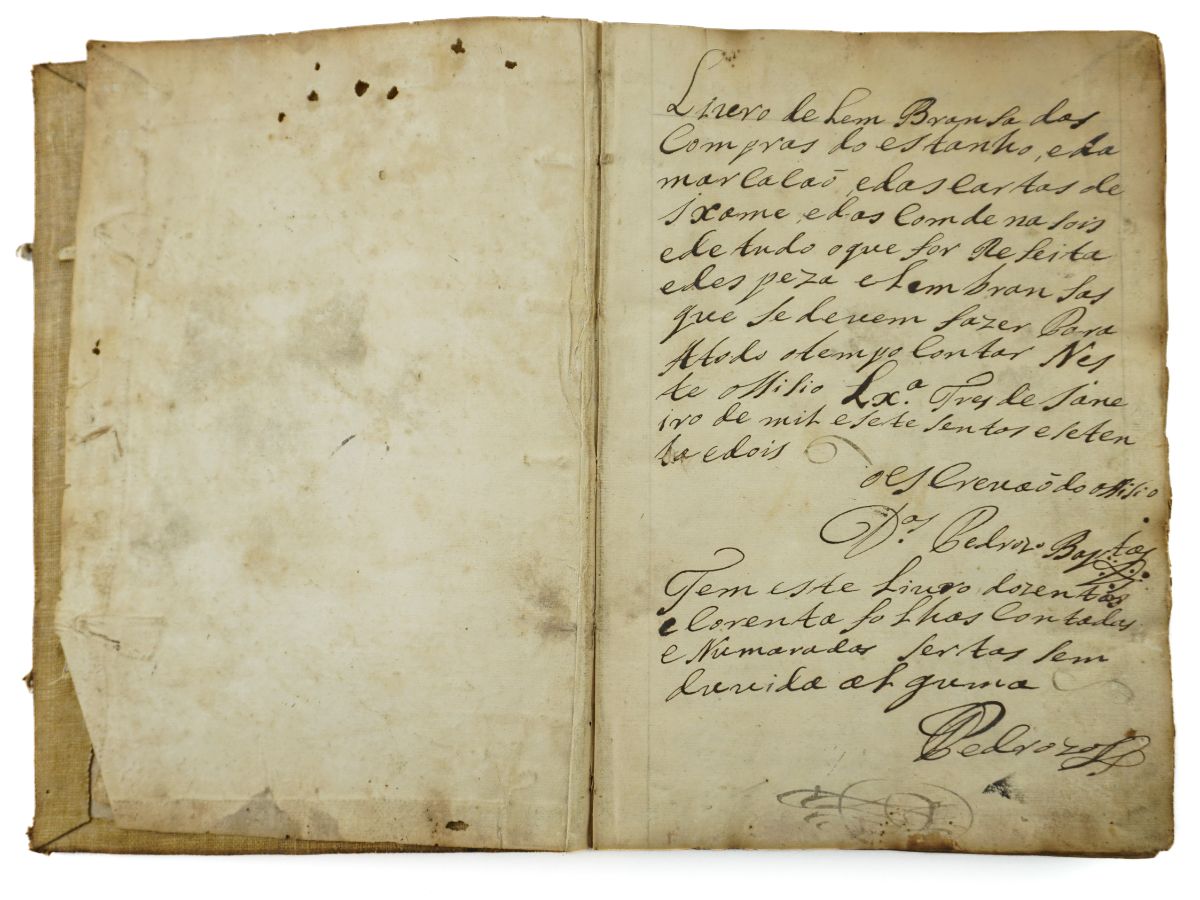 Livero de lem Bransa das
Compras do estanho, e da
marcacaõ, e das Cartas de
ixame, e das Comde na sois
e de tudo o que for Reseita
e des peza e lembran sas
que se devem fazer Para
Atodo otempo Contar Nes
te offisio Lxª. Tres de Jane
iro de mil e sete sentos e seten
ta e dois
o es Crevaõ do offisio
D.ºˢ Pedrozo Bap.tas
Tem este Livro dozentas
e Corenta folhas Contadas
e Numaradas sertas sem
duvida al guma
Pedrozo